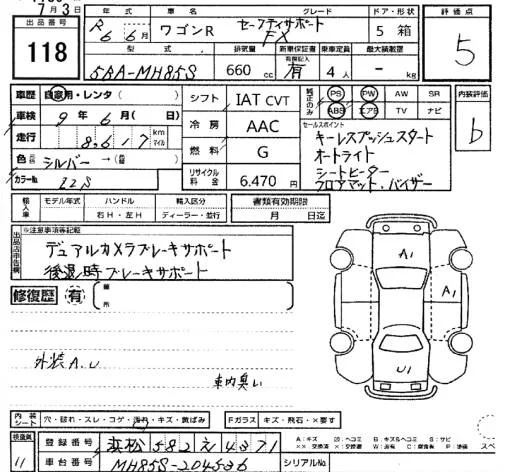 7月3日
出品番号
118
年式 車名 グレード ドア・形状 評価点
R6 6月 ワゴンR セーフティサポート FX 5 箱 5
型式 排気量 新車保証書 乗車定員 最大積載量
有償記入
5BA-MH85S 660cc 有 4人 - kg
車歴 自家用・レンタ( )
車検 9年6月(日)
走行 8,617 km マイル
色 シルバー→( 色)
カラーNo.
シフト IAT CVT
冷房 AAC
燃料 G
リサイクル料金 6,470円
純正のみ PS PW AW SR
ABS エアB TV ナビ
内装評価
b
セールスポイント
キーレスプッシュスタート
オートライト
シートヒーター
フロアマット、バイザー
輸入車 モデル年式 ハンドル 輸入区分 書類有効期限
右H・左H ディーラー・並行 月 日迄
出品店申告欄
※注意事項等記載
デュアルカメラブレーキサポート
後退時ブレーキサポート
修復歴 有 ( 箇所
外装A.U
車内臭い
A1
A1
U1
内装シート 穴・破れ・スレ・コゲ・汚れ・キズ・黄ばみ Fガラス キズ・飛石・×要す
検査員 11
登録番号 浜松 582 え 4371
車台番号 MH85S-204536 シリアルNo.
A:キズ U:ヘコミ B:キズ&ヘコミ S:サビ
××:交換済 ×:要交換 W:波有 C:腐食有 P:塗装